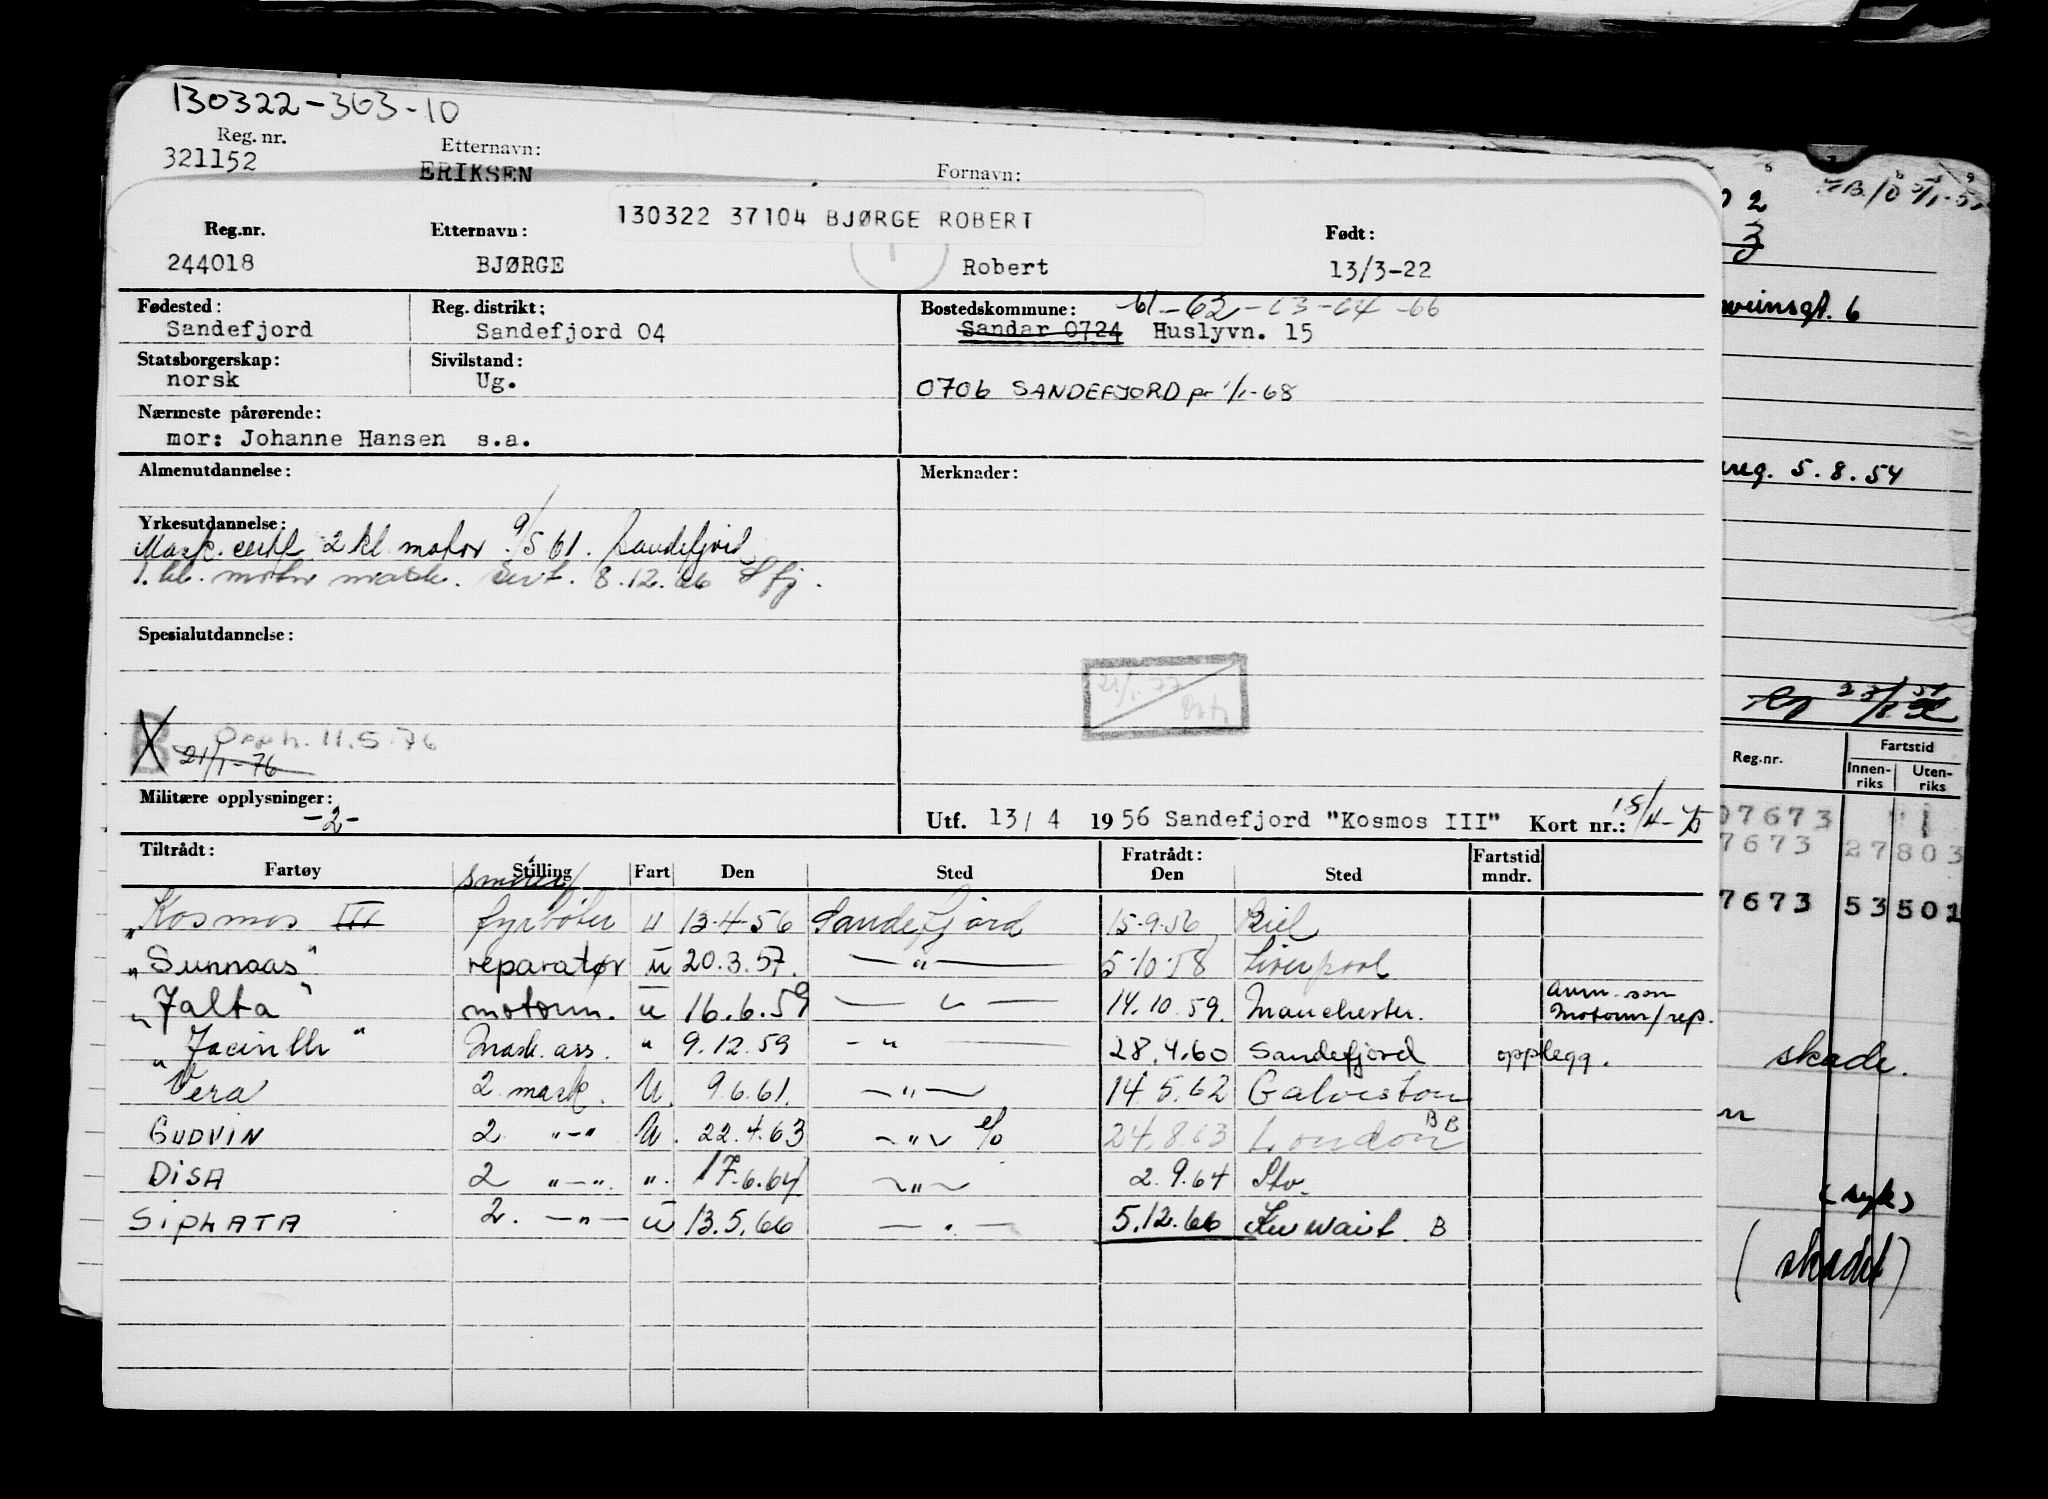 130322-363-10
Reg. nr. Etternavn: Fornavn:
321152 ERIKSEN
130322 37104 BJØRGE ROBERT
Reg.nr. Etternavn: Født:
244018 BJØRGE Robert 13/3-22
Fødested: Reg. distrikt: Bostedskommune: 61-62-63-64-66
Sandefjord Sandefjord 04 Sandar 0724 Huslyvn. 15
Statsborgerskap: Sivilstand:
norsk Ug.
0706 SANDEFJORD pr 1/1-68
Nærmeste pårørende:
mor: Johanne Hansen s.a.
Almenutdannelse: Merknader:
Yrkesutdannelse:
Mask. cert 2 kl. motor 9/5 61. Sandefjord
1. kl. motor mask. sert. 8.12.66 Sfj.
Spesialutdannelse:
21/1-77
B Opph. 11.5.76
21/1-76
Militære opplysninger:
-2-
Utf. 13/4 1956 Sandefjord "Kosmos III" Kort nr.:
Tiltrådt: Fratrådt: Fartstid
Fartøy Stilling Fart Den Sted Den Sted mndr.
smører/
Kosmos III fyrbøter u 13-4-56 Sandefjord 15-9-56 Kiel
"Sunnaas" reparatør u 20.3.57. —"— 5-10-58 Liverpool
"Jalta" motorm. u 16.6.59 —"— 14.10.59. Manchester. anm. som
Motorm/rep.
"Jacinth" Mask. ass. " 9.12.59 -"- 28.4.60 Sandefjord opplegg.
Vera 2 mask. U. 9.6.61. —"— 14.5.62 Galveston
GUDVIN 2 "-" U. 22.4.63 —"— 24.8.63 London BB
DISA 2 "-". ". 17.6.64 —"— 2.9.64 Stv.
SIPHATA 2. —"— u 13.5.66 —"— 5.12.66 Kuwait. B
02
3
5/1-5
weinsgt. 6
reg. 5.8.54
Reg.nr. Fartstid
Innen-riks Uten-riks
07673
7673 27803
7673 53501
skade.
(syk)
(skadet)